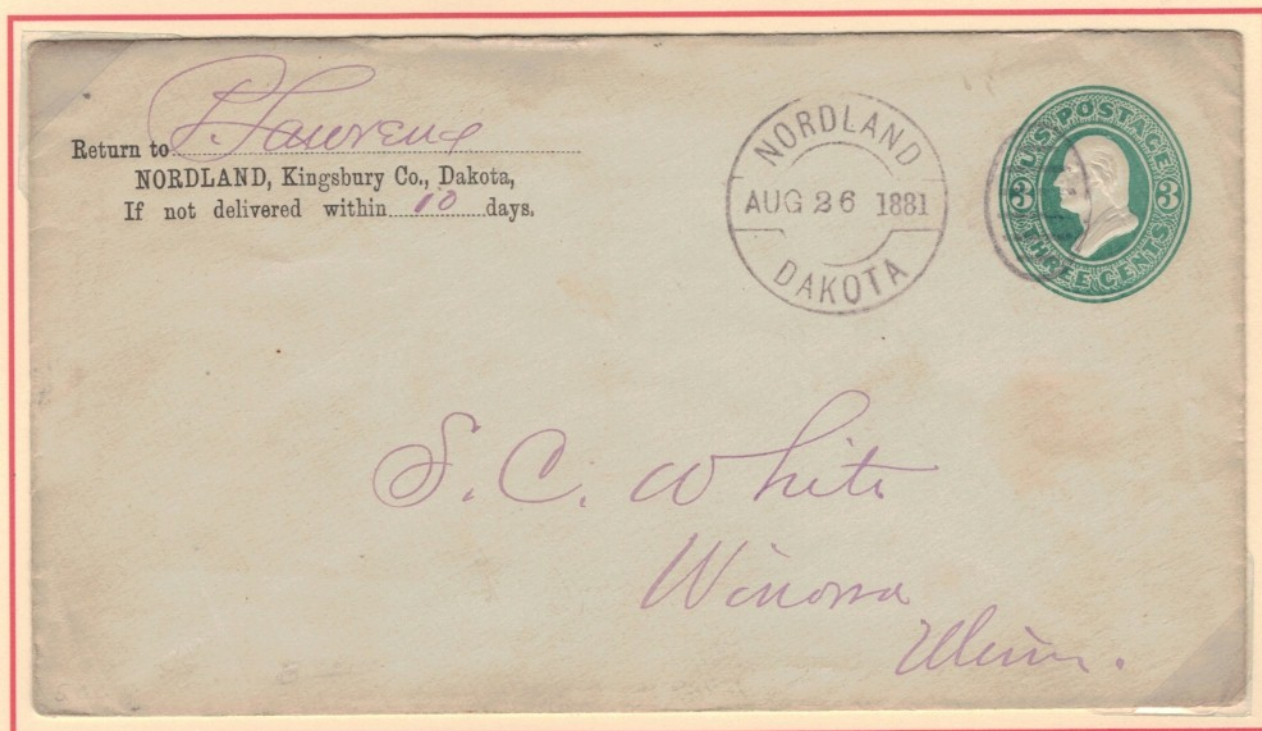 Return to P. Lawrence
NORDLAND, Kingsbury Co., Dakota,
If not delivered within 10 days.
NORDLAND
AUG 26 1881
DAKOTA
U.S. POSTAGE
3 3
THREE CENTS
S. C. White
Winona
Minn.